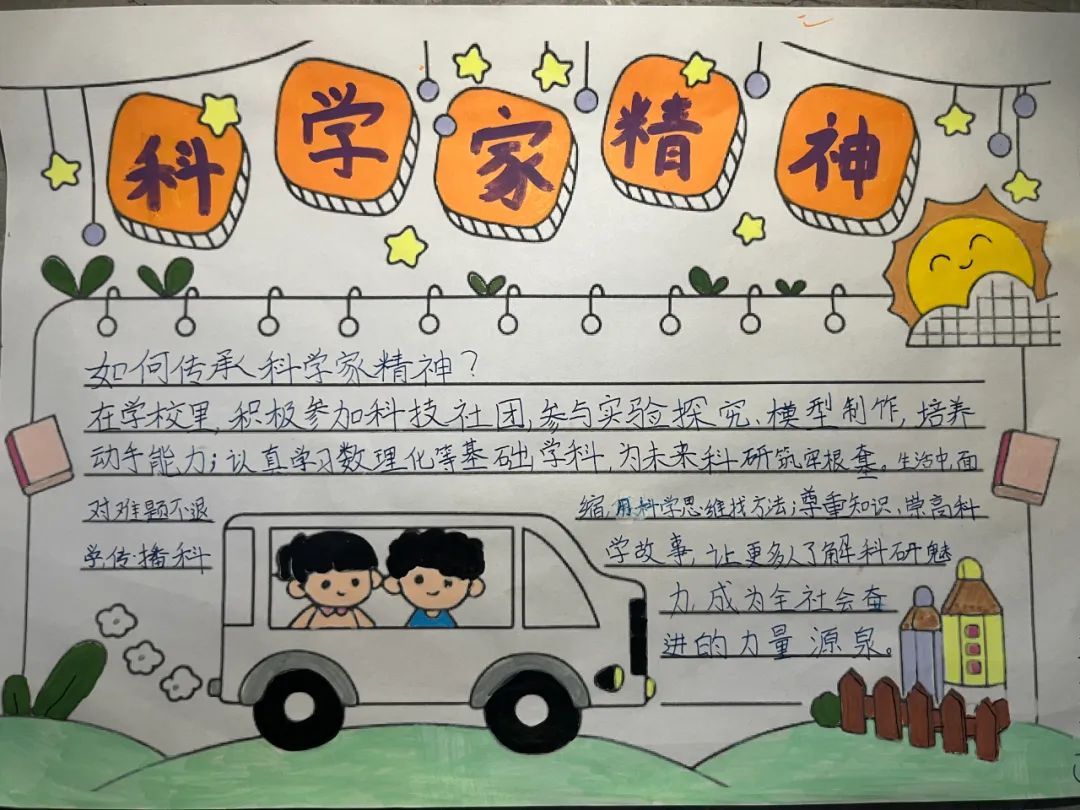 科学家精神
如何传承科学家精神?
在学校里,积极参加科技社团,参与实验探究、模型制作,培养
动手能力;认真学习数理化等基础学科,为未来科研筑牢根基。生活中,面
对难题不退缩,用科学思维找方法;尊重知识,崇高科
学,传播科学故事,让更多人了解科研魅
力,成为全社会奋
进的力量源泉。